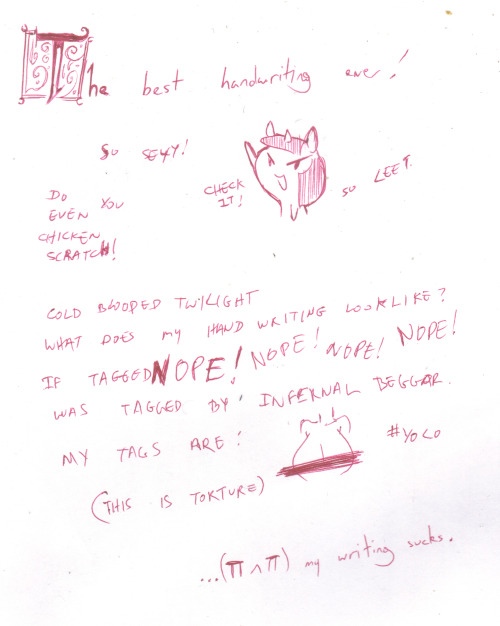 The best handwriting ever!
SO SEXY!
CHECK IT!
SO LEET.
DO
EVEN YOU
CHICKEN
SCRATCH!
COLD BLOODED TWILIGHT
WHAT DOES MY HAND WRITING LOOK LIKE?
IF TAGGED NOPE! NOPE! NOPE! NOPE!
WAS TAGGED BY: INFERNAL BEGGAR.
MY TAGS ARE:
#YOLO
(THIS IS TORTURE)
...(TT^TT) my writing sucks.